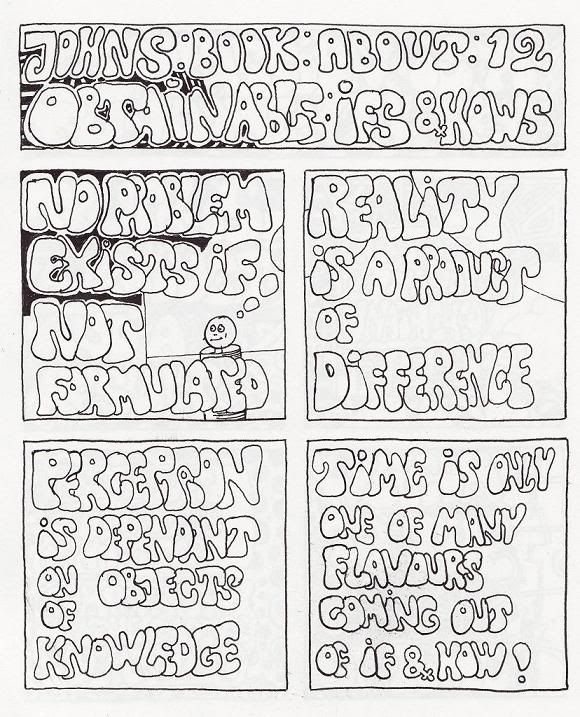 JOHNS:BOOK:ABOUT:12
OBTAINABLE:IFS & HOWS
NO PROBLEM
EXISTS IF
NOT
FORMULATED
REALITY
IS A PRODUCT
OF
DIFFERENCE
PERCEPTION
IS DEPENDANT
ON OBJECTS
OF
KNOWLEDGE
TIME IS ONLY
ONE OF MANY
FLAVOURS
COMING OUT
OF IF & HOW!